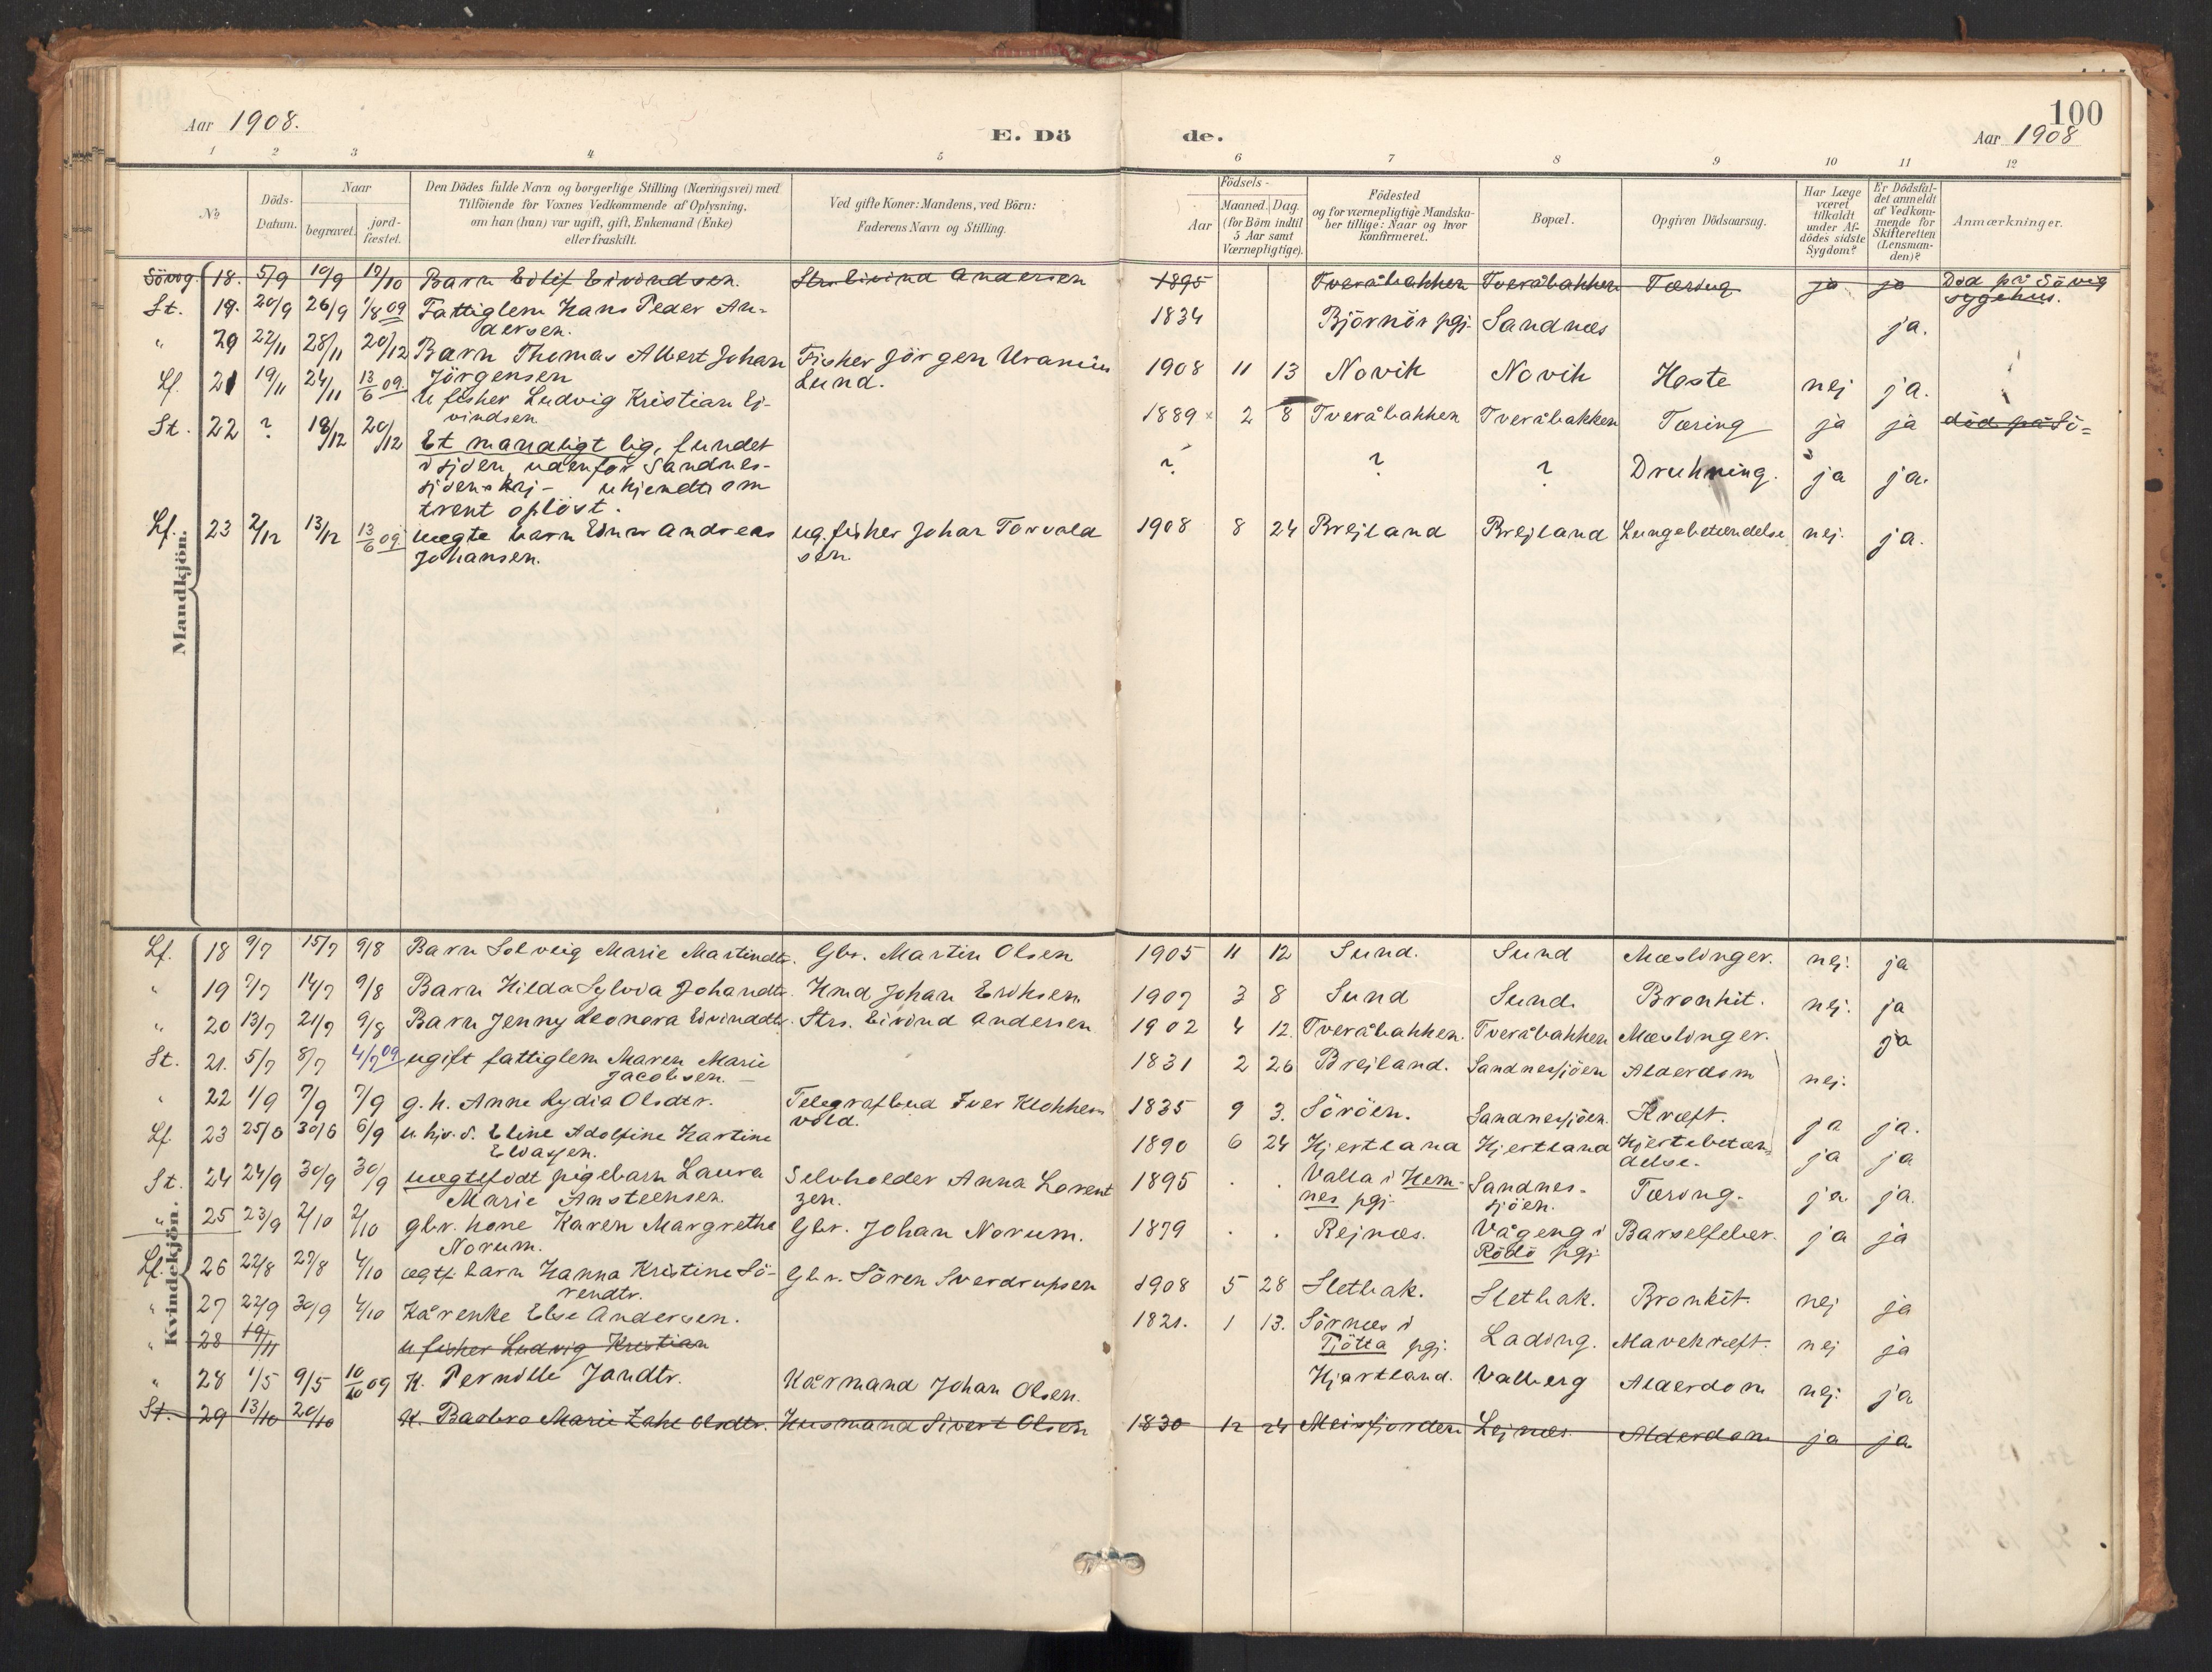 100
Aar 1908.
E. Dö de.
Aar 1908
1 2 3 4 5 6 7 8 9 10 11 12
No
Döds-Datum.
Naar
begravet.
jord-fæstet.
Den Dödes fulde Navn og borgerlige Stilling (Næringsvei) med
Tilföiende for Voxnes Vedkommende af Oplysning.
om han (hun) var ugift, gift, Enkemand (Enke)
eller fraskilt.
Ved gifte Koner: Mandens, ved Börn:
Faderens Navn og Stilling.
Födsels-
Aar
Maaned. Dag.
(for Börn indtil
5 Aar samt
Værnepligtige).
Födested
og for værnepligtige Mandska-
ber tillige: Naar og hvor
konfirmeret.
Bopæl.
Opgiven Dödsaarsag.
Har Læge
været
tilkaldt
under Af-
dödes sidste
Sygdom?
Er Dödsfal-
det anmeldt
af Vedkom-
mende for
Skifteretten
(Lensman-
den)?
Anmærkninger.
Mandkjön.
Sövig 18. 5/9 10/9 Barn Eilif Eivindsen. Strs. Eivind Andersen 1895 Tveråbakken Tveråbakken Tæring ja ja Död på Sövig
sygehus.
St. 19. 20/9 26/9 1/8 09 Fattiglem Hans Peder An-
dersen. 1834 Björnör pgj. Sandnæs ja.
" 20 22/11 28/11 20/12 Barn Thomas Albert Johan Fisker Jörgen Uranius 1908 11 13 Novik Novik Hoste nej ja.
Jörgensen Lund.
Lf. 21 19/11 24/11 13/6 09. u fisker Ludvig Kristian Ej-
vindsen 1889 2 8 Tveråbakken Tveråbakken Tæring ja ja död på Sö=
St. 22 ? 18/12 20/12 Et mandligt lig, fundet
i sjöen, udenfor Sandnes-
sjöen - ukjendt om
trent oplöst. ? ? ? Drukning. ja ja.
Lf. 23 2/12 13/12 13/6 09 uægte barn Einar Andreas ug. fisker Johan Torvald 1908 8 24 Brejland Brejland Lungebetændelse nej. ja.
Johansen. sen.
Kvindekjön.
Lf. 18 9/7 15/7 9/8 Barn Solveig Marie Martindtr. Gbr. Martin Olsen 1905 11 12 Sund. Sund Mæslinger. nej. ja
" 19 7/7 14/7 9/8 Barn Hilda Sylvia Johandtr. Hmd Johan Eriksen 1907 3 8 Sund Sund. Bronkit. nej. ja
" 20 13/7 21/7 9/8 Barn Jenny Leonora Eivinddtr. Strs. Eivind Andersen 1902 4 12. Tveråbakken. Tveråbakken Mæslinger. ja
St. 21. 5/7 8/7 4/7 09 ugift fattiglem Maren Marie
Jacobsen. 1831 2 26 Brejland. Sandnessjöen Alderdom nej.
" 22 1/9 7/9 7/9 g. k. Anne Lydia Olsdtr. Telegrafbud Iver Klokker- 1835 9 3. Söröen. Sandnessjöen. Kræft. ja ja.
vold.
Lf. 23 25/8 30/8 6/9 u. hjv. d. Eline Adolfine Hartine
1890 6 24 Hjertland Hjertland Hjertebetæn-
delse. ja ja
St. 24 24/9 30/9 30/9 uægtefödt pigebarn Laura Selvholder Anna Lorent 1895 . . Valla i Hem- Sandnes- Tæring. ja ja.
Marie Amsteensen. zen. nes pgj. sjöen.
" 25 23/9 2/10 2/10 gbr. kone Karen Margrethe Gbr. Johan Norum. 1879 . . Rejnæs. Vågeng i Barselfeber. ja ja
Norum. Rödö pgj.
Lf. 26 22/8 27/8 4/10 ægtf. barn Hanna Kristine Sö- Gbr. Sören Sverdrupsen 1908 5 28 Sletbak. Sletbak. Bronkit. nej ja
rendtr.
" 27 22/9 30/9 4/10 Kårenke Else Andersen. 1821. 1 13. Sörnæs i
Tjötta pgj. Lading. Mavekræft. nej ja
" 28 19/11 u fisker Ludvig Kristian
" 28 1/5 9/5 10/10 09 K. Pernille Jondtr. Kårmand Johan Olsen. Hjartland. Valberg Alderdom nej. ja
St. 29 13/10 20/10 K. Barbro Marie Olsdtr. Husmand Sivert Olsen 1830 12 24 Meisfjorden Lejnæs. Alderdom. ja ja.